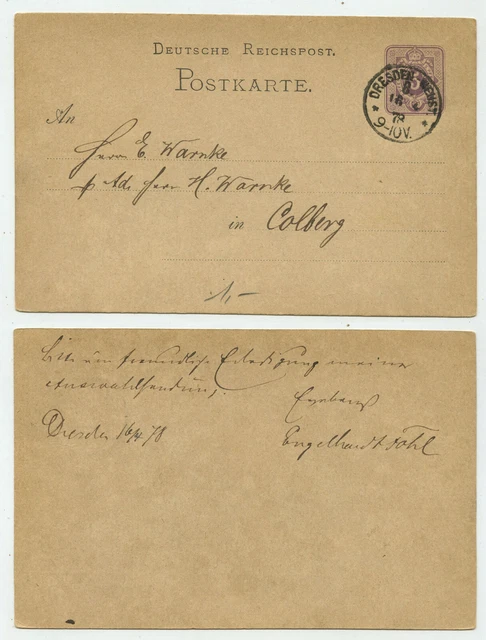 DEUTSCHE REICHSPOST.
POSTKARTE.
DRESDEN-NEUST.
16
78
9-10V.
5
An
Herrn E. Warnke
p Adr Herrn H. Warnke
in Colberg
Bitte um freundliche Erledigung meiner
Auswahlsendung.
Ergebenst
Dresden 16/4 78
Engelhardt Fohl